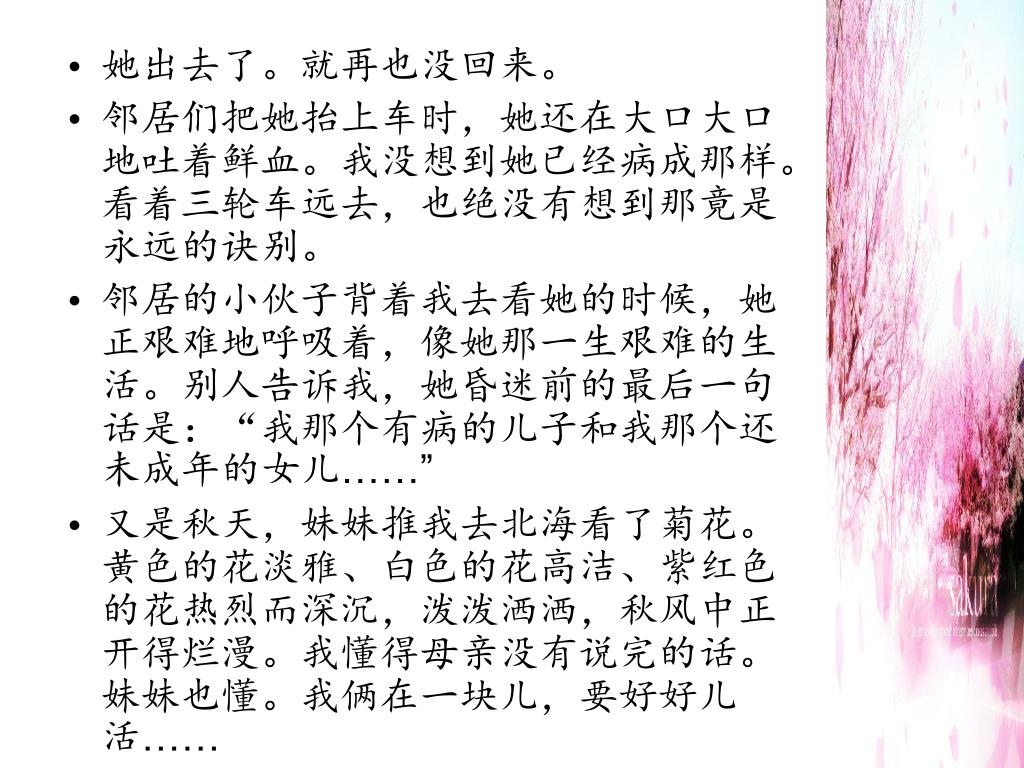 • 她出去了。就再也没回来。
• 邻居们把她抬上车时，她还在大口大口
地吐着鲜血。我没想到她已经病成那样。
看着三轮车远去，也绝没有想到那竟是
永远的诀别。
• 邻居的小伙子背着我去看她的时候，她
正艰难地呼吸着，像她那一生艰难的生
活。别人告诉我，她昏迷前的最后一句
话是：“我那个有病的儿子和我那个还
未成年的女儿……”
• 又是秋天，妹妹推我去北海看了菊花。
黄色的花淡雅、白色的花高洁、紫红色
的花热烈而深沉，泼泼洒洒，秋风中正
开得烂漫。我懂得母亲没有说完的话。
妹妹也懂。我俩在一块儿，要好好儿
活……
sakura